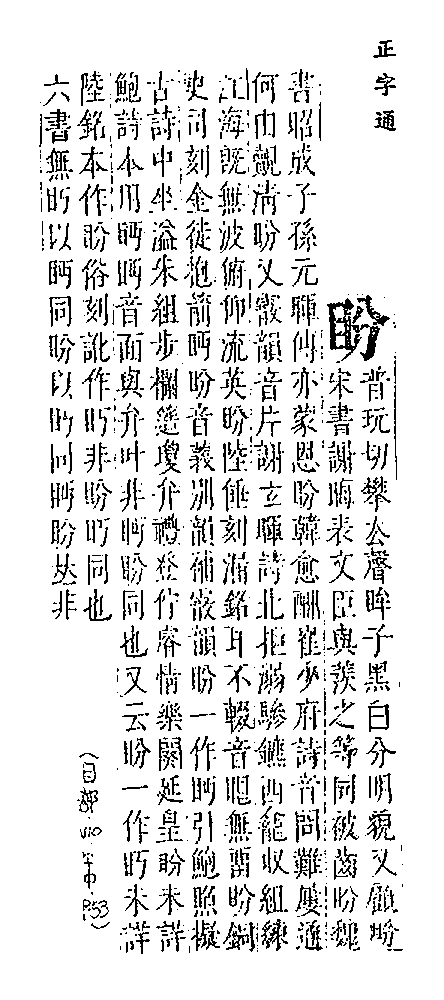 正字通
盼
普玩切攀去聲眸子黑白分明貌又顧盼
宋書謝晦表文臣與羨之等同被齒盼魏
書昭成子孫元暉傳亦蒙恩盼韓愈酬崔少府詩音問難屢通
何由覿清盼又霰韻音片謝玄暉詩北拒溺驂鑣西龕收組練
江海旣無波俯仰流英盼陸倕刻漏銘耳不輟音眼無盼銅
史司刻金徒抱箭眄盼音義別韻補霰韻盼一作眄引鮑照擬
古詩中坐溢朱組步欄簉瓊弁禮登佇睿情樂闋延皇盼未詳
鮑詩本用眄眄音面與弁叶非眄盼同也又云盼一作未詳
陸銘本作盼俗刻訛作非盼同也
六書無以眄同盼以同眄盼𠀤非
(目部·午中·P.53)